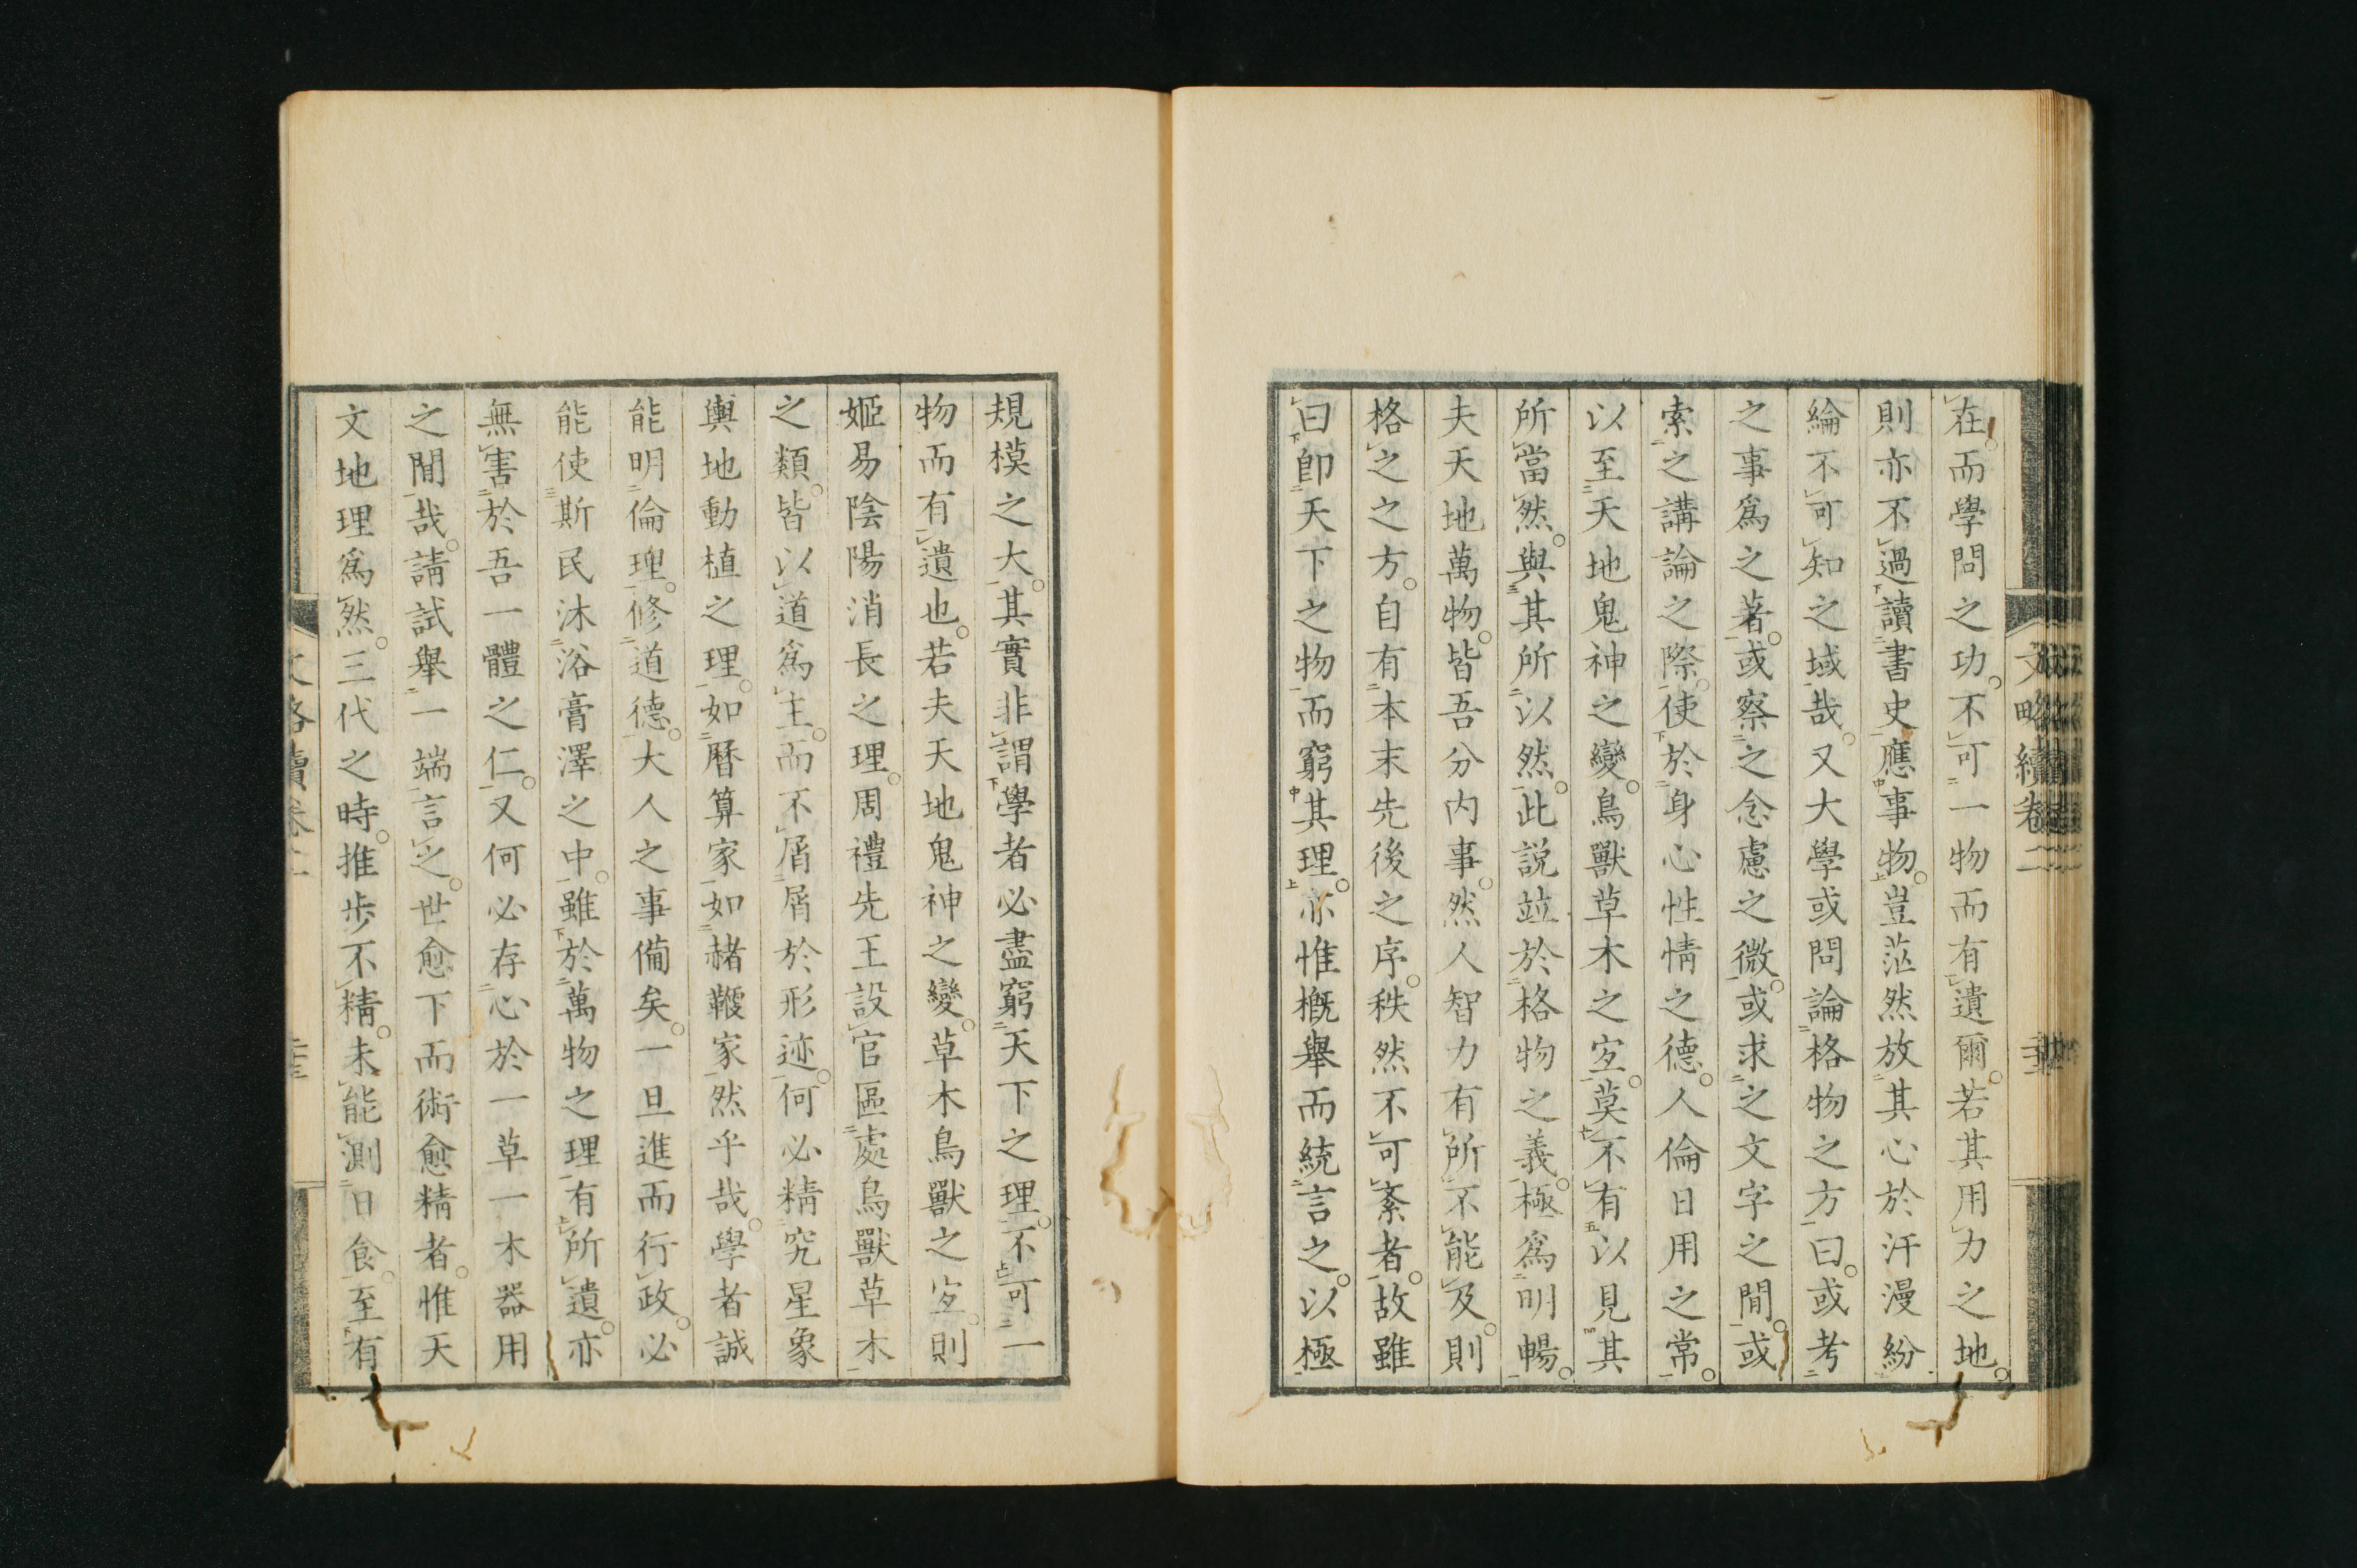 在。而學問之功。不可一物而有遺爾。若其用力之地。
則亦不過讀書史應事物。豈茫然放其心於汗漫紛
綸不可知之域哉。又大學或問論格物之方曰。或考
之事爲之著。或察之念慮之微。或求之文字之閒。或
索之講論之際。使於身心性情之德。人倫日用之常。
以至天地鬼神之變。鳥獸草木之宐。莫不有以見其
所當然。與其所以然。此説竝於格物之義。極爲明暢。
夫天地萬物。皆吾分内事。然人智力有所不能及。則
格之之方。自有本末先後之序。秩然不可紊者。故雖
曰卽天下之物而窮其理。亦惟槪舉而統言之。以極
規模之大。其實非謂學者必盡窮天下之理。不可一
物而有遺也。若夫天地鬼神之變。草木鳥獸之宐。則
姬易陰陽消長之理。周禮先王設官區處鳥獸草木
之類。皆以道爲主。而不屑屑於形迹。何必精究星象
輿地動植之理。如曆算家如赭鞭家然乎哉。學者誠
能明倫理。修道德。大人之事備矣。一旦進而行政。必
能使斯民沐浴膏澤之中。雖於萬物之理有所遺。亦
無害於吾一體之仁。又何必存心於一草一木器用
之閒哉。請試舉一端言之。世愈下而術愈精者。惟天
文地理爲然。三代之時。推歩不精。未能測日食。至有